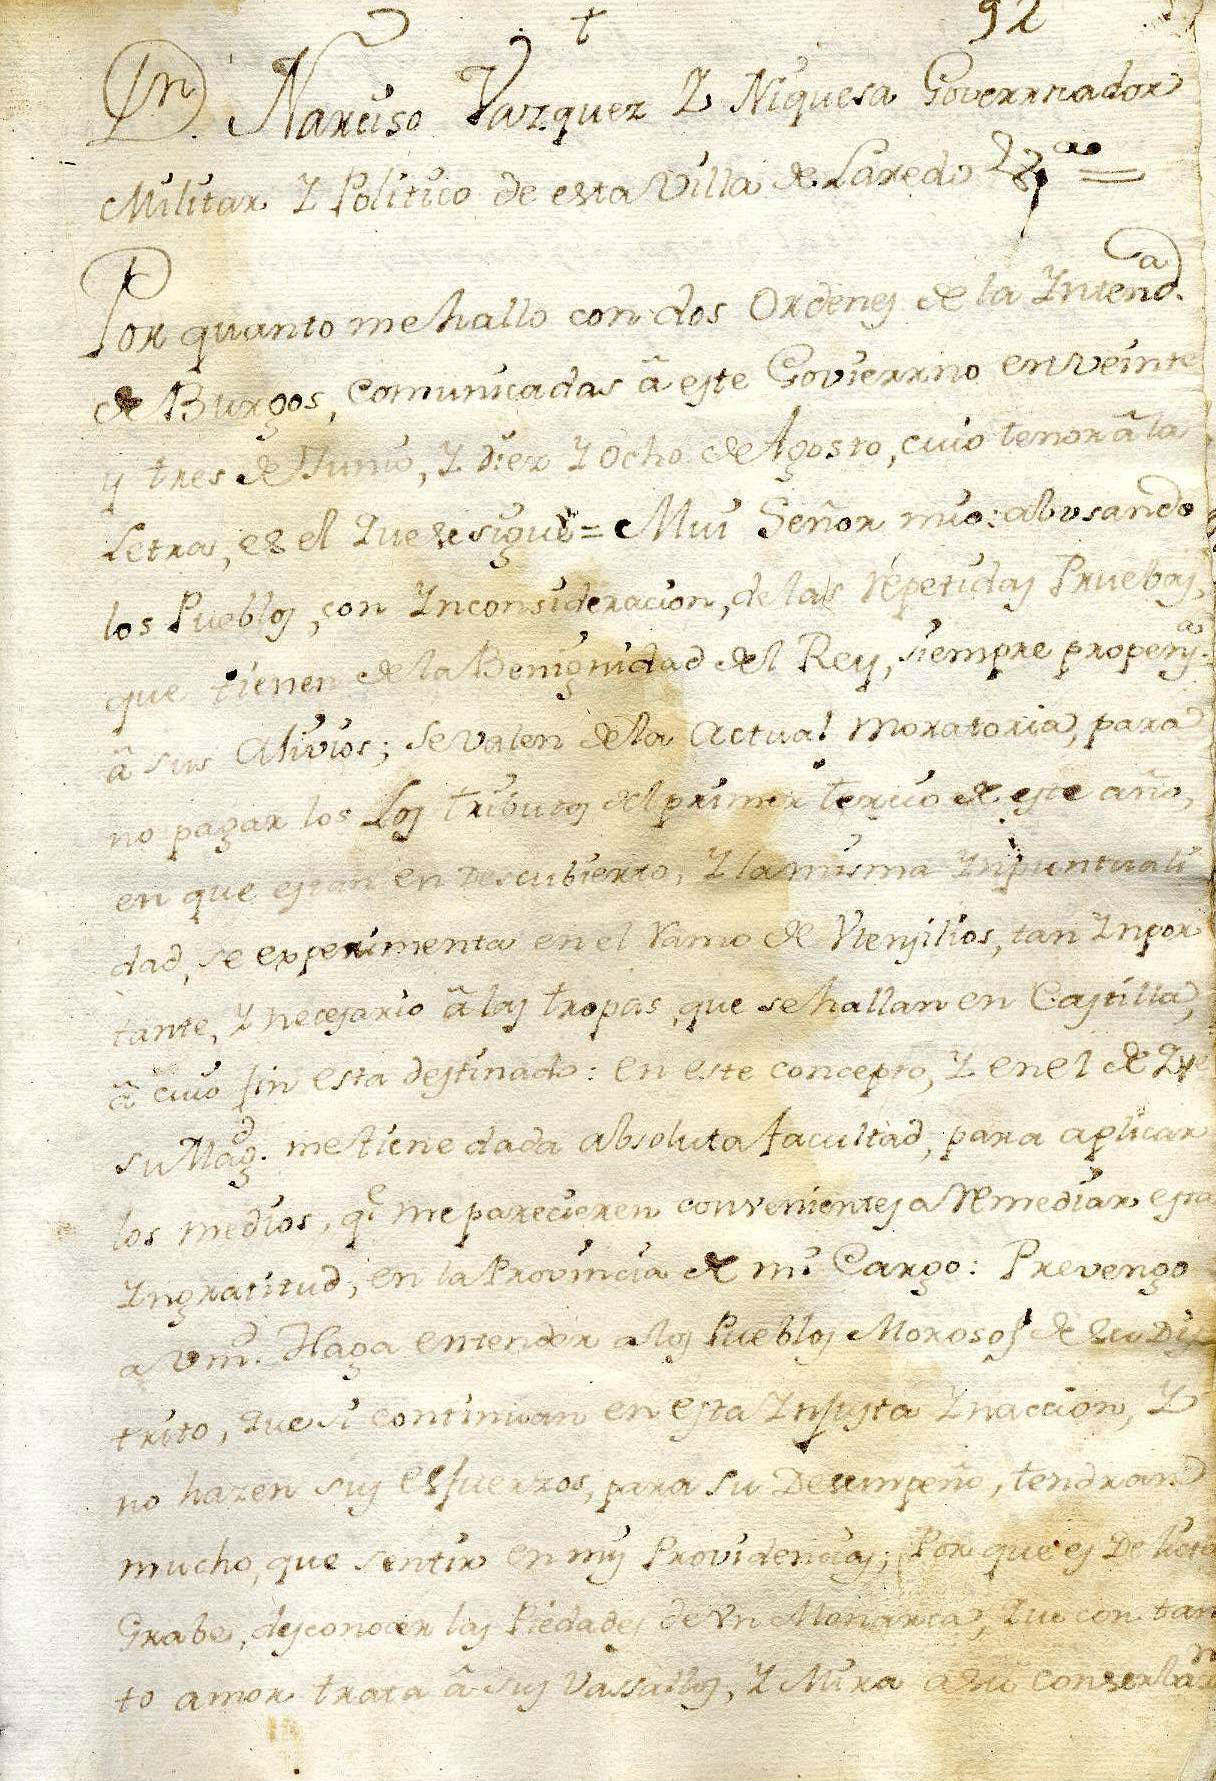 † 92
Dn. Narciso Vazquez Y Niquesa Governador
Militar Y Politico de esta Villa de Laredo =
Por quanto me hallo con dos Ordenes de la Yntenda.
de Burgos, comunicadas â este Govierrno en veinte
y tres de Junio, Y diez Y ocho de Agosto, cuio tenor â la
Letra, es el que se sigue = Mui Señor mio: abusando
los Pueblos, con Ynconsideracion, de las repetidas Pruebas,
que tienen de la Benignidad del Rey, siempre propensa
â sus Alivios; se valen de la actual moratoria, para
no pagar los Los tributos del primer tercio de este año,
en que estan en Descubierto, Y la misma Ynpuntuali
dad, se experimenta en el ramo de Vtensilios, tan Ynpor
tante, Y necesario â las tropas, que se hallan en Castilla,
â cuio fin esta destinado: en este concepto, Y en el de Qe
su Magd. me tiene dada absoluta facultad, para aplicar
los medios, qe me parecieren convenientes a remediar esta
Yngratitud, en la Provincia de mi Cargo: Prevengo
a Vmd. Haga entender a los Pueblos Morosos de su Dis
trito, que si continuan en esta Ynjusta Ynaccion, Y
no hazen sus esfuerzos, para su Desempeño, tendran
mucho, que sentir en mis Providencias; Por que es Delicto
Grabe, desconocer las Piedades de Vn Monarca, que con tan
to amor trata â sus Vassallos, Y Mira a su conserban